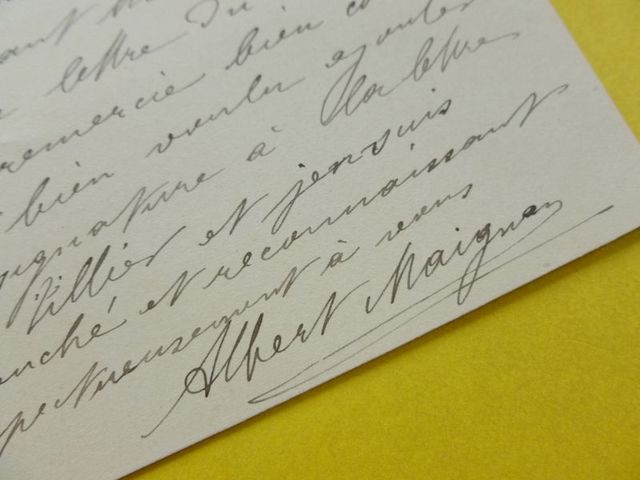 lettre du
remercie bien
bien vouloir ajouter
signature à la lettre
Tillier et j'en suis
touché et reconnaissant
pectueusement à vous
Albert Maignan